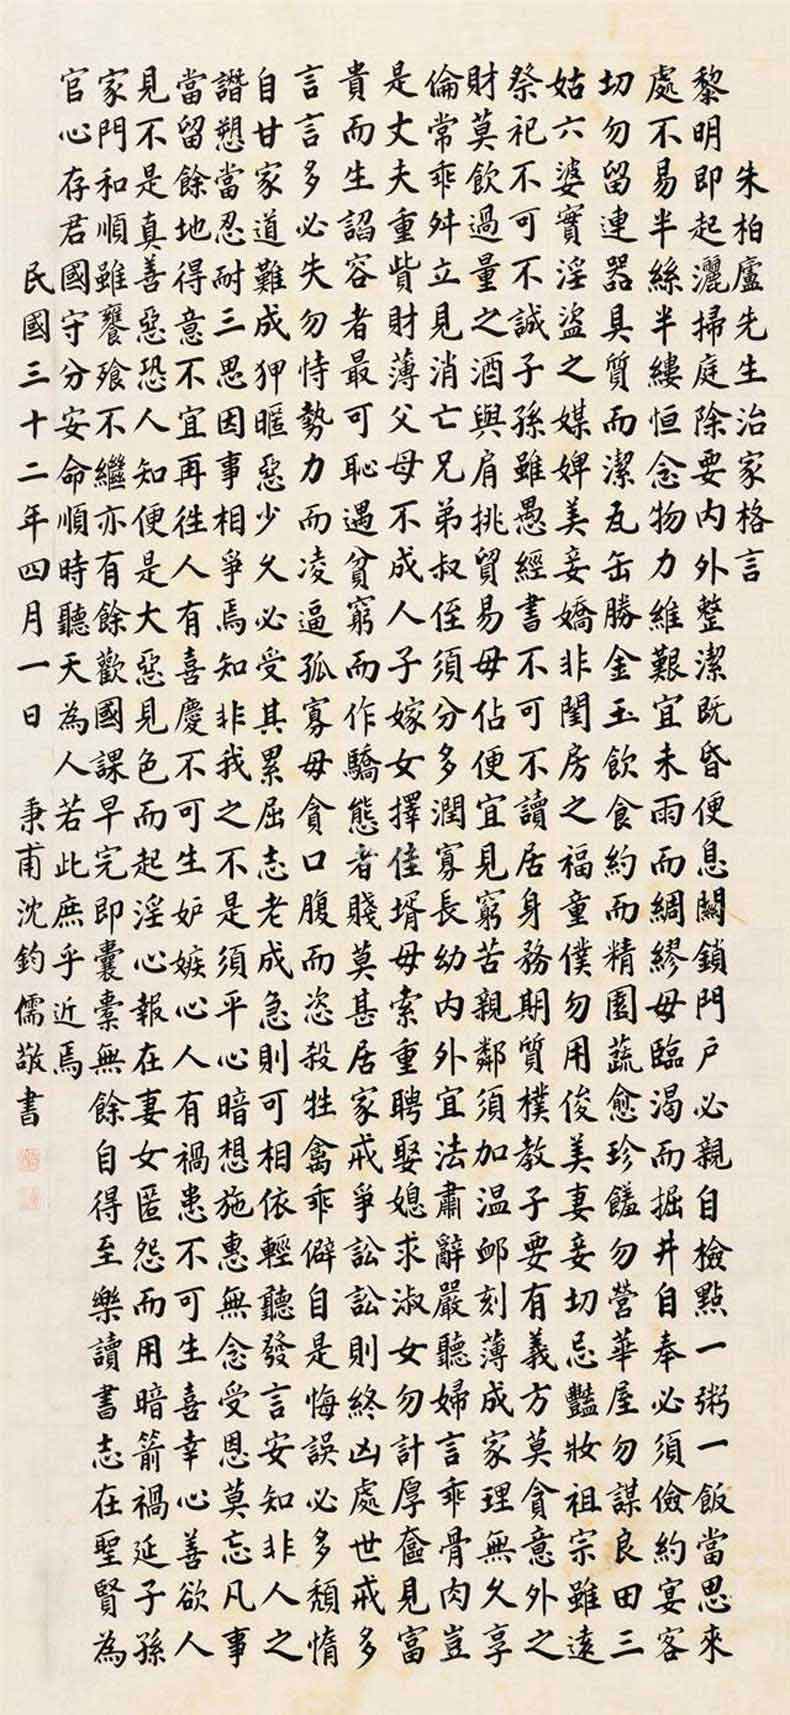 朱柏廬先生治家格言
黎明即起灑掃庭除要內外整潔既昏便息關鎖門戶必親自檢點一粥一飯當思來
處不易半絲半縷恒念物力維艱宜未雨而綢繆毋臨渴而掘井自奉必須儉約宴客
切勿留連器具質而潔瓦缶勝金玉飲食約而精園蔬愈珍饈勿營華屋勿謀良田三
姑六婆實淫盜之媒婢美妾嬌非閨房之福童僕勿用俊美妻妾切忌豔妝祖宗雖遠
祭祀不可不誠子孫雖愚經書不可不讀居身務期質樸教子要有義方莫貪意外之
財莫飲過量之酒與肩挑貿易毋佔便宜見窮苦親鄰須加温卹刻薄成家理無久享
倫常乖舛立見消亡兄弟叔侄須分多潤寡長幼內外宜法肅辭嚴聽婦言乖骨肉豈
是丈夫重貲財薄父母不成人子嫁女擇佳壻毋索重聘娶媳求淑女勿計厚奩見富
貴而生諂容者最可恥遇貧窮而作驕態者賤莫甚居家戒爭訟訟則終凶處世戒多
言言多必失勿恃勢力而凌逼孤寡毋貪口腹而恣殺牲禽乖僻自是悔誤必多頹惰
自甘家道難成狎暱惡少久必受其累屈志老成急則可相依輕聽發言安知非人之
譖愬當忍耐三思因事相爭焉知非我之不是須平心暗想施惠無念受恩莫忘凡事
當留餘地得意不宜再往人有喜慶不可生妒嫉心人有禍患不可生喜幸心善欲人
見不是真善惡恐人知便是大惡見色而起淫心報在妻女匿怨而用暗箭禍延子孫
家門和順雖饔飧不繼亦有餘歡國課早完即囊橐無餘自得至樂讀書志在聖賢為
官心存君國守分安命順時聽天為人若此庶乎近焉
民國三十二年四月一日 秉甫沈鈞儒敬書